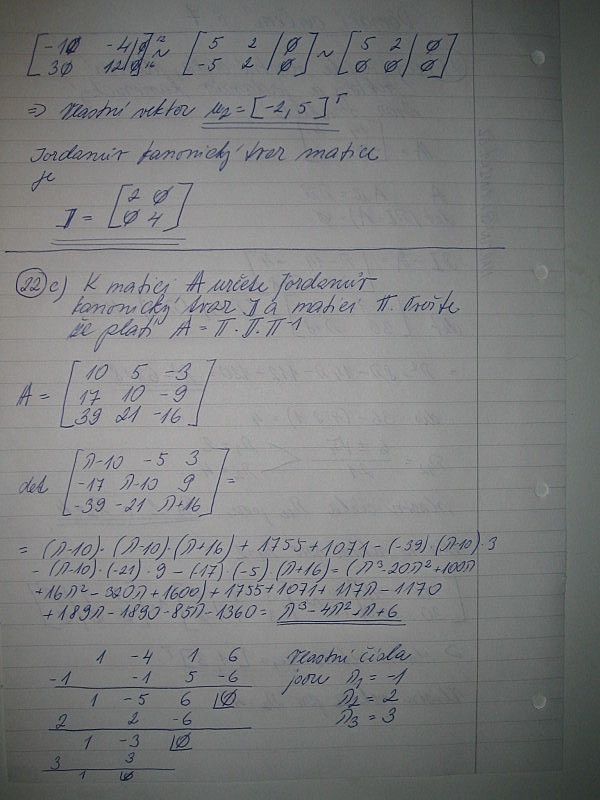 [-10 -4 | 0; 30 12 | 0] ~ [5 2 | 0; -5 2 | 0] ~ [5 2 | 0; 0 0 | 0]
=> Vlastní vektor u₂ = [-2, 5]ᵀ
Jordanův kanonický tvar matice
je
J = [2 0; 0 4]
22 c) K matici A určete Jordanův
kanonický tvar J a matici P.
že platí A = P·J·P⁻¹
A = [10 5 -3; 17 10 -9; 39 21 -16]
det [λ-10 -5 3; -17 λ-10 9; -39 -21 λ+16] =
= (λ-10)·(λ-10)·(λ+16) + 1755 + 1071 - (-39)·(λ-10)·3
- (λ-10)·(-21)·9 - (-17)·(-5)(λ+16) = (λ³-20λ²+100λ
+16λ²-320λ+1600) + 1755 + 1071 + 117λ - 1170
+189λ-1890-85λ-1360 = λ³-4λ²+λ+6
1 -4 1 6 Vlastní čísla
-1 -1 5 -6 jsou λ₁ = -1
1 -5 6 0 λ₂ = 2
2 2 -6 λ₃ = 3
1 -3 0
3 3
1 0